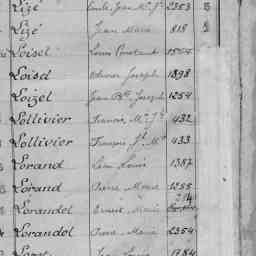 Lizé Emile Jean M. Jh 2353 3
Lizé Jean Marie 818 2
Loisel Louis Constant 1554
Loisel Olivier Joseph 1898
Loizel Jean Bte Joseph 1254
Lollivier Francois, M. Jh 432
Lollivier François Jh M. 433
Lorand Léon Louis 1387
Lorand Pierre Marie 1255
Lorandel Ernest Marie 214
Lorandel Pierre Marie 2354
Louis 1784